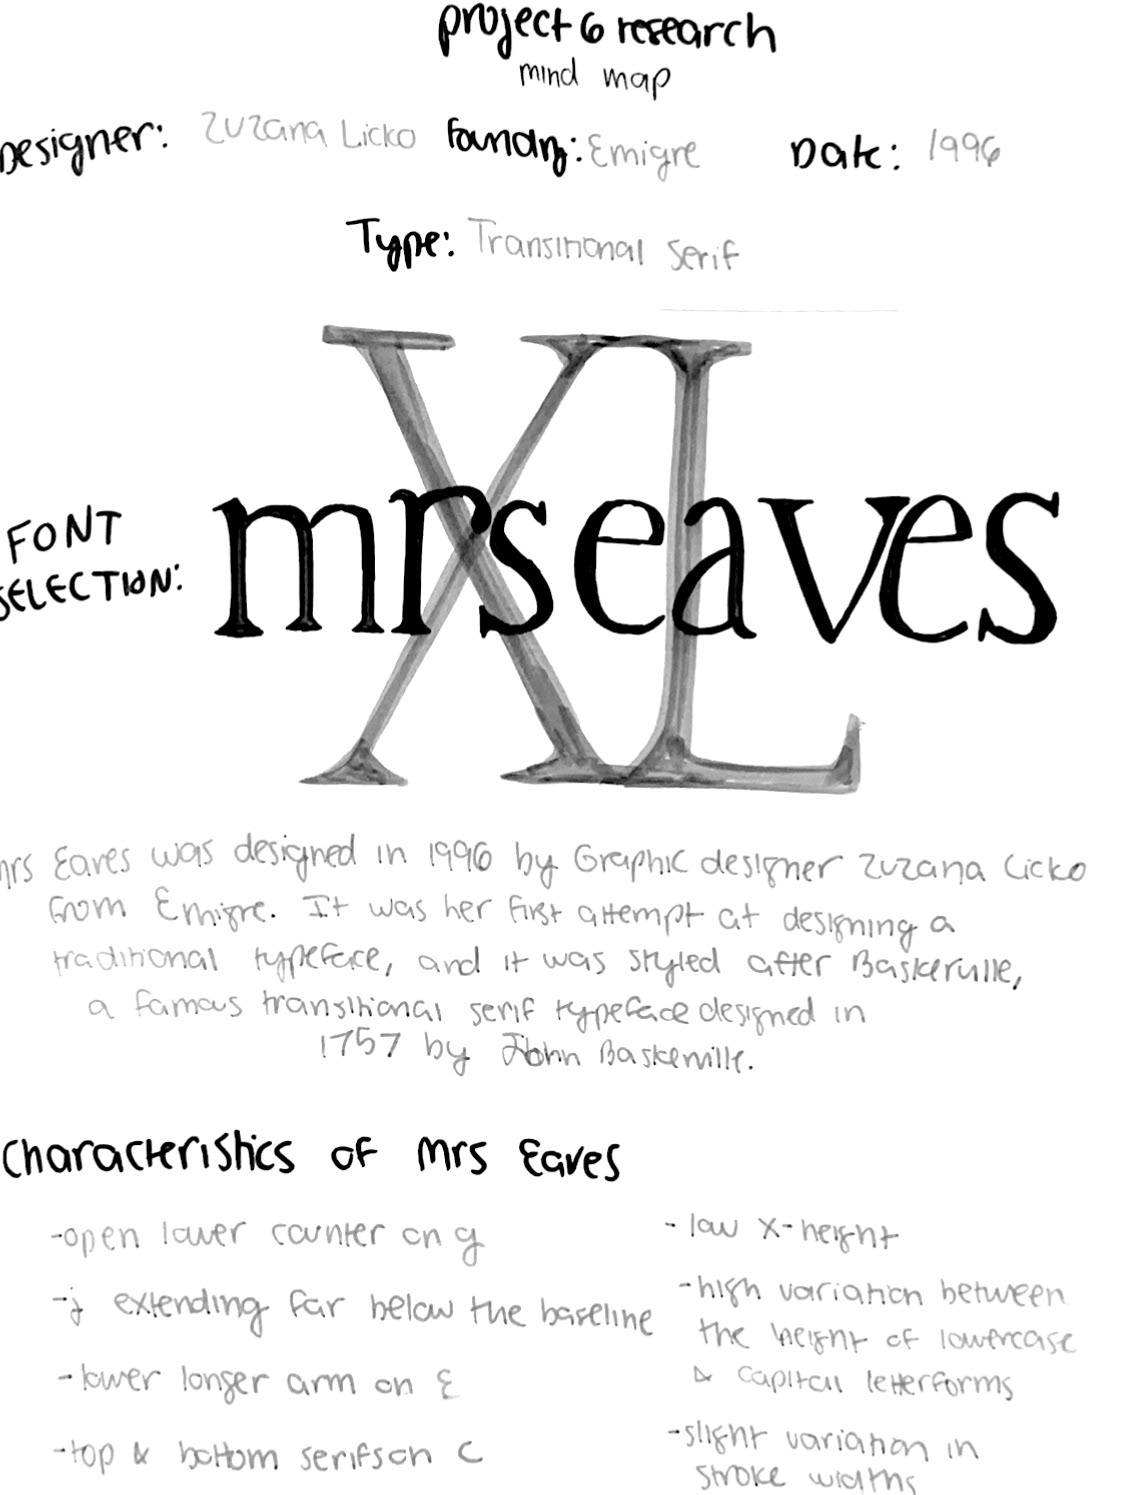 project 6 research
mind map
Designer: Zuzana Licko Foundry: Emigre Date: 1996
Type: Transitional Serif
XL
FONT
SELECTION:
mrseaves
mrs Eaves was designed in 1996 by Graphic designer Zuzana Licko
from Emigre. It was her first attempt at designing a
traditional typeface, and it was styled after Baskerville,
a famous transitional serif typeface designed in
1757 by John Baskerville.
Characteristics of Mrs Eaves
-open lower counter on g
-j extending far below the baseline
-lower longer arm on E
-top & bottom serifs on C
- low x-height
-high variation between
the height of lowercase
& capital letterforms
-slight variation in
stroke widths